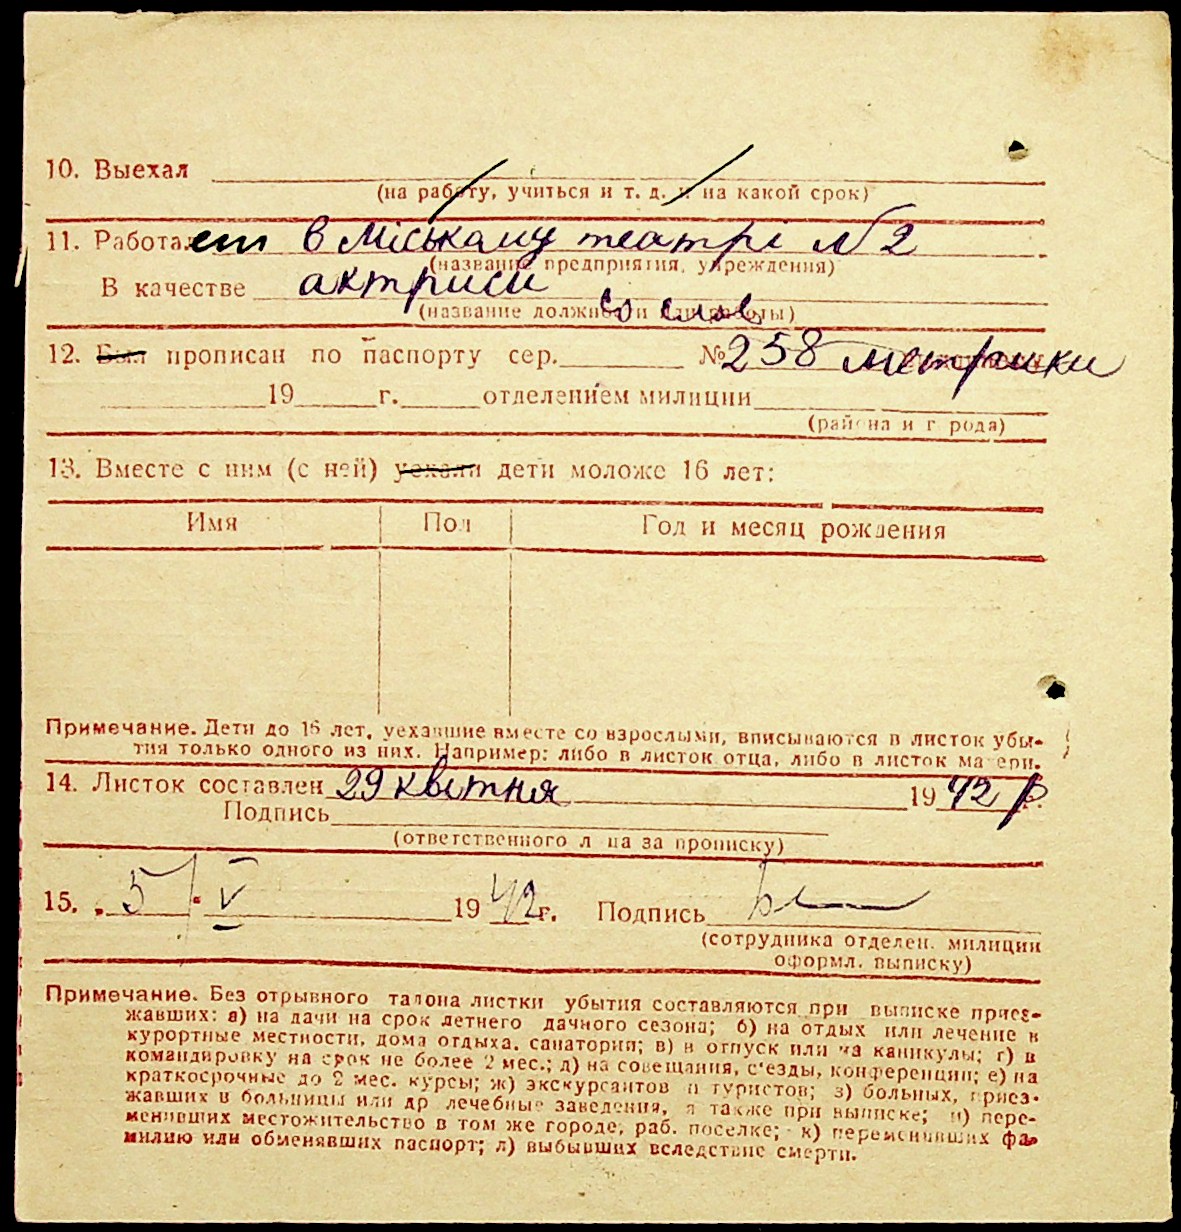 10. Выехал
(на работу, учиться и т. д. и на какой срок)
11. Работает в міському театрі № 2
(название предприятия, учреждения)
В качестве актриси
(название должности или работы)
со слов
12. Был прописан по паспорту сер. № 258 метрики
19 г. отделением милиции
(района и города)
13. Вместе с ним (с ней) уехали дети моложе 16 лет:
Имя Пол Год и месяц рождения
Примечание. Дети до 16 лет, уехавшие вместе со взрослыми, вписываются в листок убы-
тия только одного из них. Например: либо в листок отца, либо в листок матери.
14. Листок составлен 29 квітня 1942 р.
Подпись
(ответственного лица за прописку)
15. 5/V 1942 г. Подпись
(сотрудника отделен. милиции
оформл. выписку)
Примечание. Без отрывного талона листки убытия составляются при выписке приез-
жавших: а) на дачи на срок летнего дачного сезона; б) на отдых или лечение в
курортные местности, дома отдыха, санатории; в) в отпуск или на каникулы; г) в
командировку на срок не более 2 мес.; д) на совещания, с'езды, конференции; е) на
краткосрочные до 2 мес. курсы; ж) экскурсантов и туристов; з) больных, приез-
жавших в больницы или др лечебные заведения, а также при выписке; и) пере-
менивших местожительство в том же городе, раб. поселке; к) переменивших фа-
милию или обменявших паспорт; л) выбывших вследствие смерти.